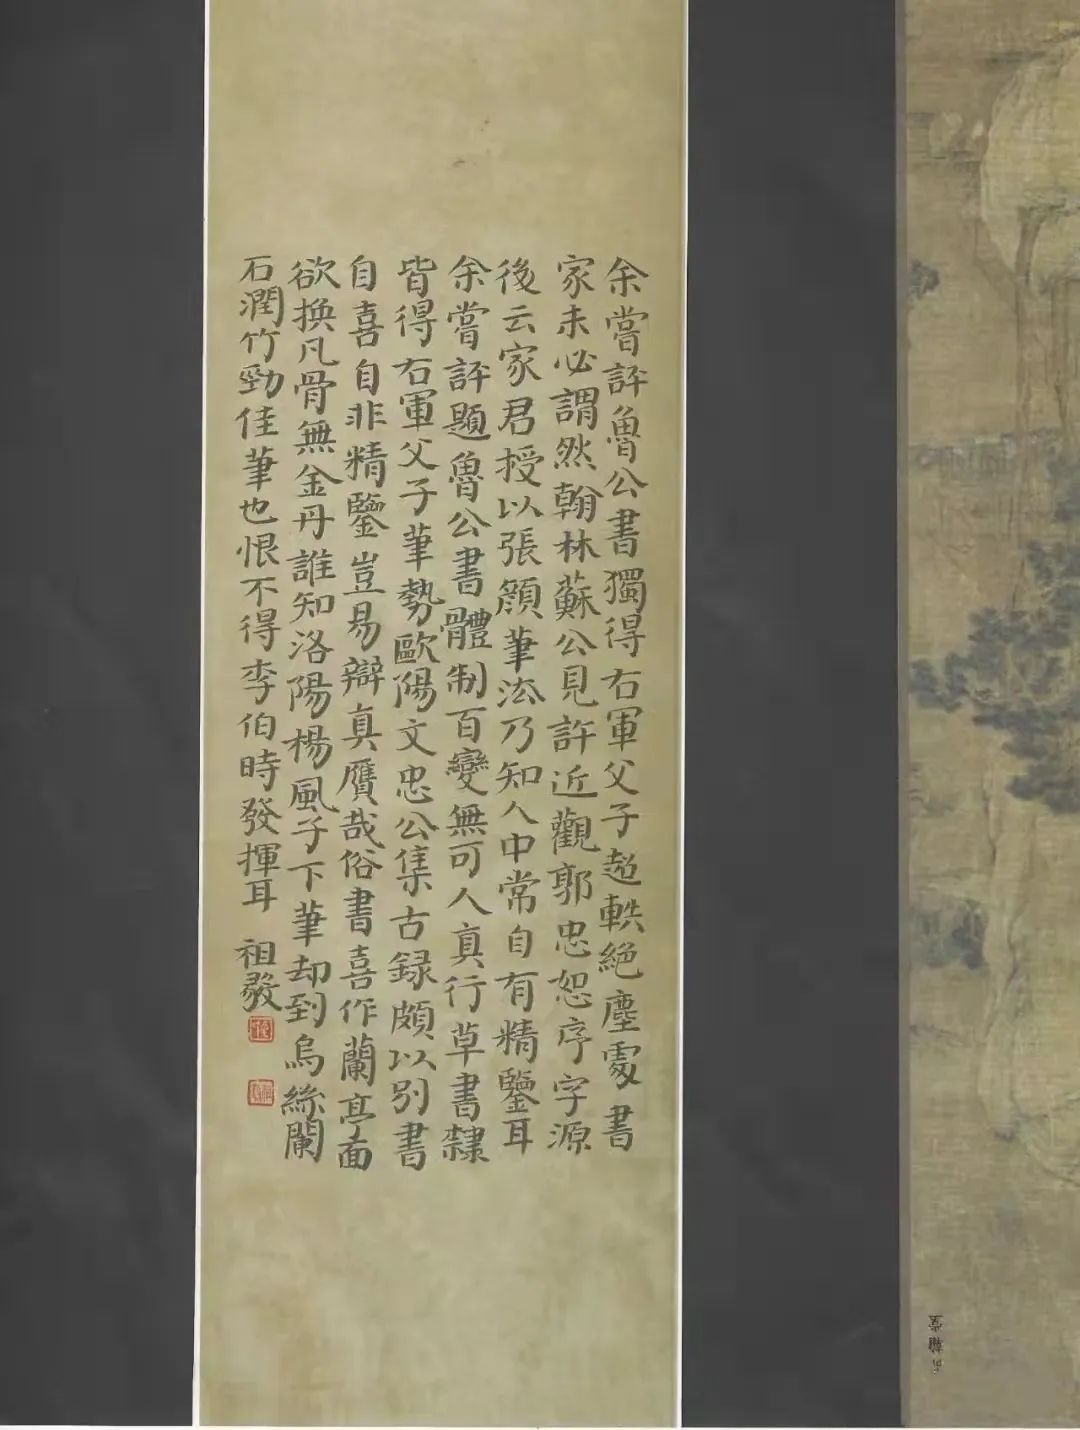 余嘗評魯公書獨得右軍父子超軼絕塵處書
家未必謂然翰林蘇公見許近觀郭忠恕序字源
後云家君授以張顏筆法乃知人中常自有精鑒耳
余嘗評題魯公書體制百變無可人真行草書隸
皆得右軍父子筆勢歐陽文忠公集古録頗以別書
自喜自非精鑒豈易辯真贋哉俗書喜作蘭亭面
欲換凡骨無金丹誰知洛陽楊風子下筆却到烏絲闌
石潤竹勁佳筆也恨不得李伯時發揮耳 祖發